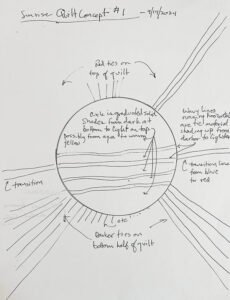 Sunrise Quilt Concept #1 - 9/17/2024
Red ties on
top of quilt
Circle is graduated solid
shades from dark at
bottom to light on top -
possibly from aqua to
yellow
Wavy lines
ranging horizontal
are tie material
shading up from
darker to lighter
transition
transition line
from blue
to red
Darker ties on
bottom half of quilt